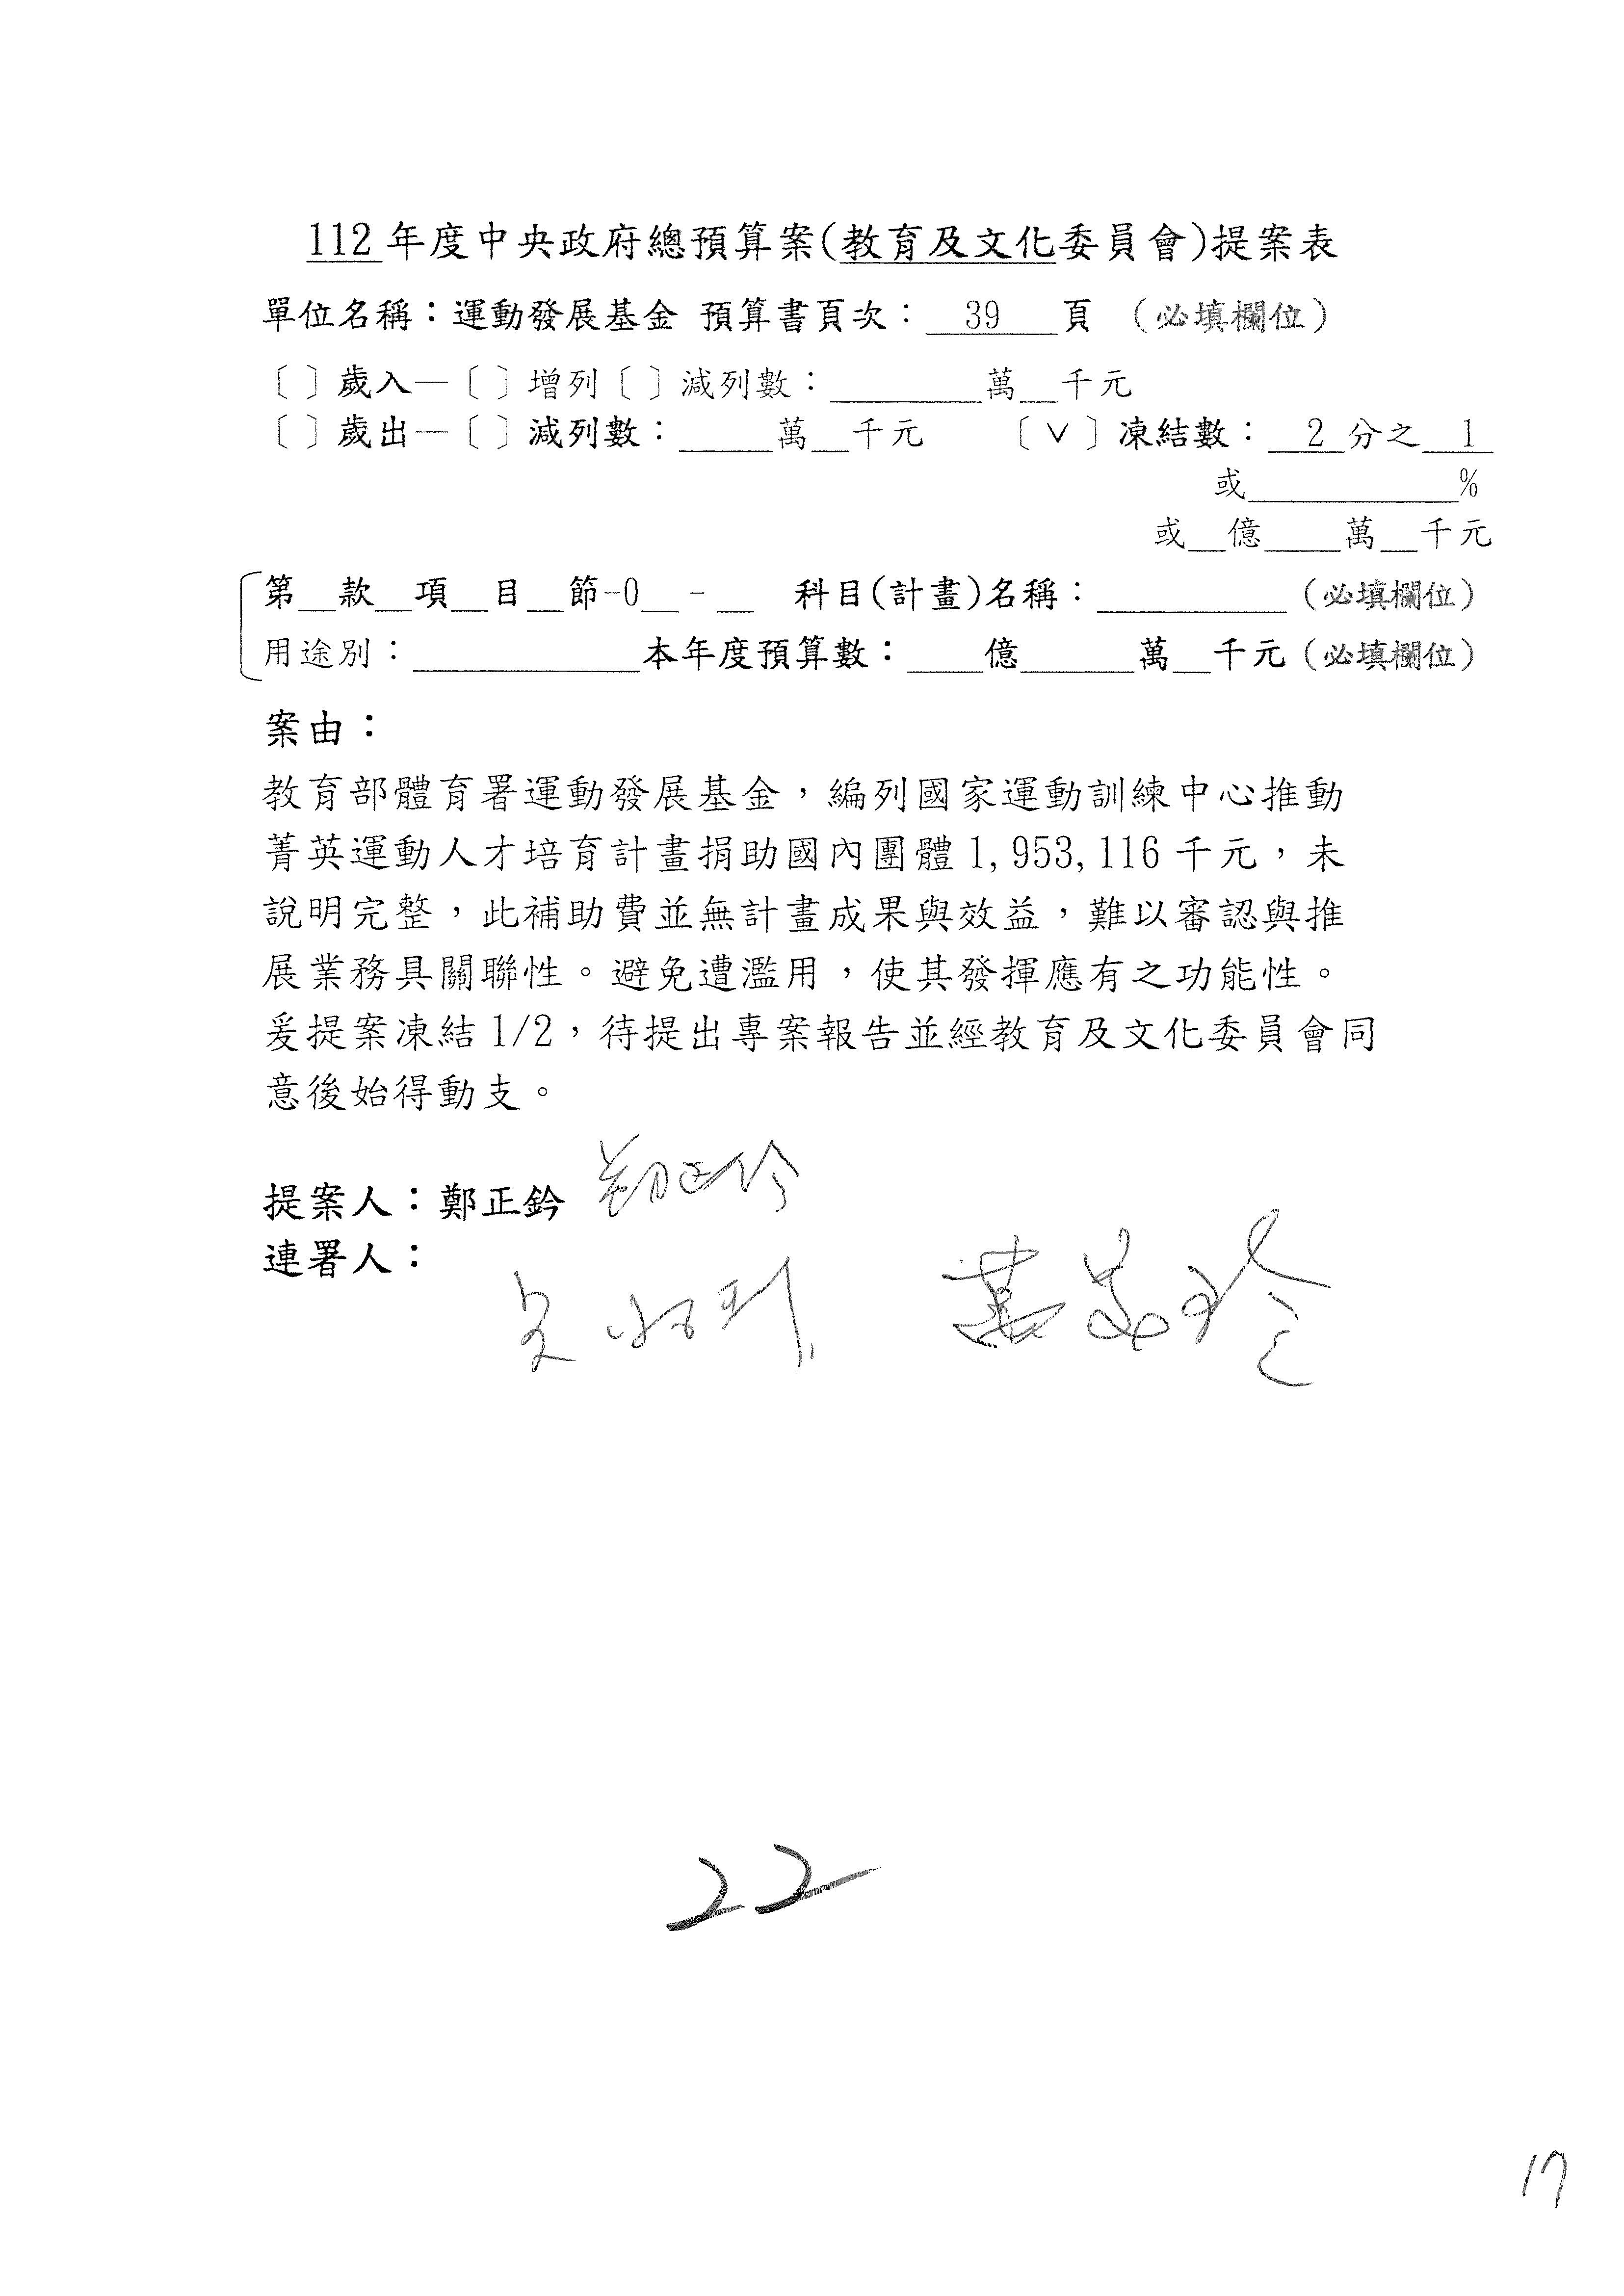 112年度中央政府總預算案(教育及文化委員會)提案表
單位名稱：運動發展基金 預算書頁次：__39__頁 （必填欄位）
〔 〕歲入—〔 〕增列〔 〕減列數：________萬__千元
〔 〕歲出—〔 〕減列數：_____萬__千元 〔∨〕凍結數：__2__分之__1__
或___________%
或__億____萬__千元
第__款__項__目__節-0__-__ 科目(計畫)名稱：__________（必填欄位）
用途別：____________本年度預算數：____億______萬__千元（必填欄位）
案由：
教育部體育署運動發展基金，編列國家運動訓練中心推動
菁英運動人才培育計畫捐助國內團體1,953,116千元，未
說明完整，此補助費並無計畫成果與效益，難以審認與推
展業務具關聯性。避免遭濫用，使其發揮應有之功能性。
爰提案凍結1/2，待提出專案報告並經教育及文化委員會同
意後始得動支。
提案人：鄭正鈐 鄭正鈐
連署人：
22
17